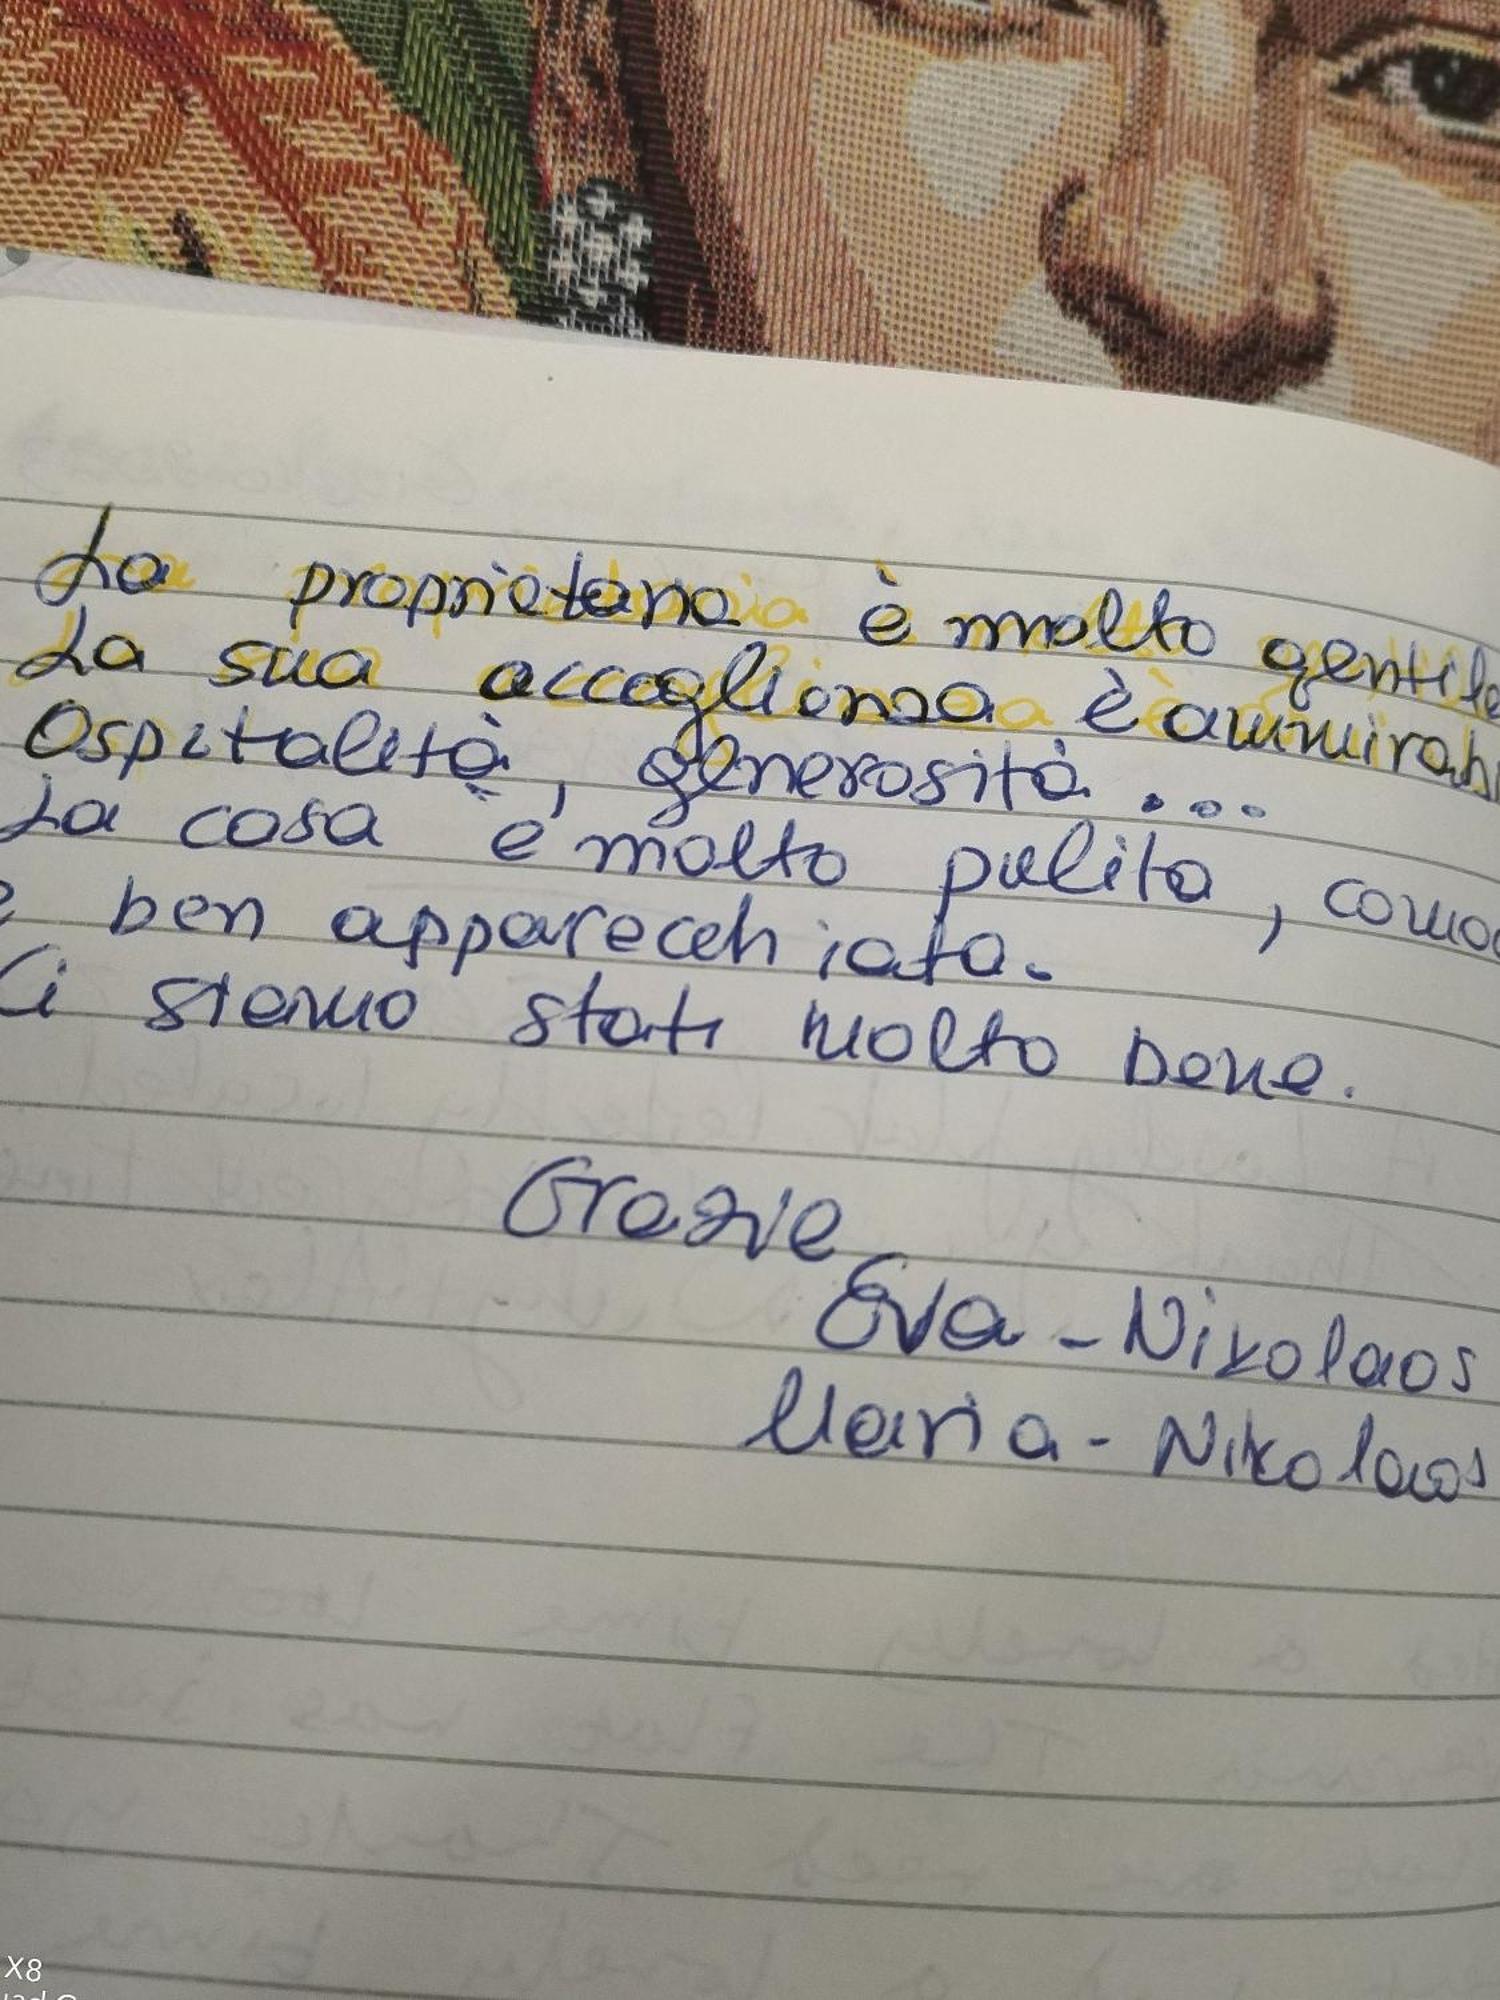 La proprietaria è molto gentile
La sua accoglienza è ammirab
Ospitalità, generosità...
La casa è molto pulita, comod
e ben apparecchiata.
Ci siamo stati molto bene.
Grazie
Eva - Nikolaos
Maria - Nikolaos
X8